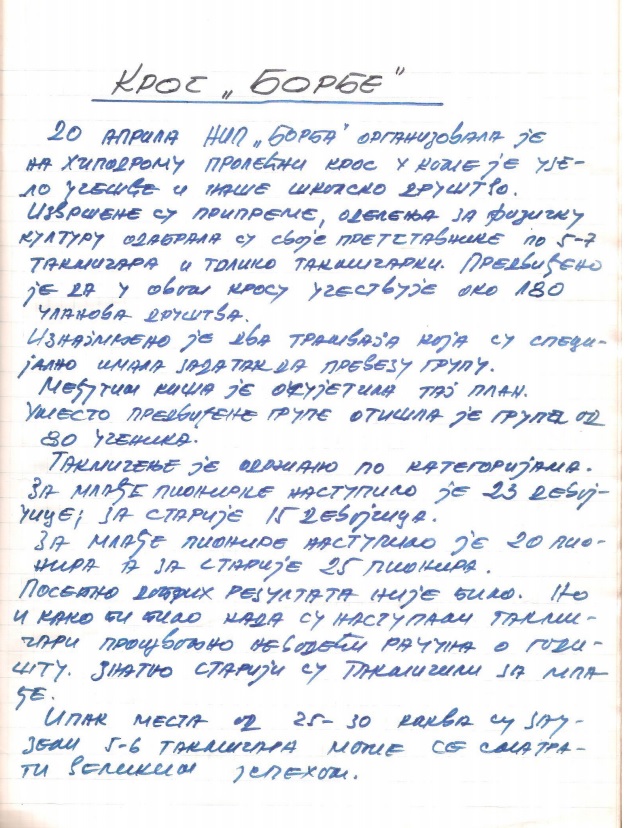 КРОС „БОРБЕ"
20 АПРИЛА НИП „БОРБА" ОРГАНИЗОВАЛА ЈЕ
НА ХИПОДРОМУ ПРОЛЕЋНИ КРОС У КОМЕ ЈЕ УЗЕ-
ЛО УЧЕШЋЕ И НАШЕ ШКОЛСКО ДРУШТВО.
ИЗВРШЕНЕ СУ ПРИПРЕМЕ, ОДЕЛЕЊА ЗА ФИЗИЧКУ
КУЛТУРУ ОДАБРАЛА СУ СВОЈЕ ПРЕТСТАВНИКЕ ПО 5-7
ТАКМИЧАРА И ТОЛИКО ТАКМИЧАРКИ. ПРЕДВИЂЕНО
ЈЕ ДА У ОВОМ КРОСУ УЧЕСТВУЈЕ ОКО 180
ЧЛАНОВА ДРУШТВА.
ИЗНАЈМЉЕНО ЈЕ ДВА ТРАМВАЈА КОЈА СУ СПЕЦИ-
ЈАЛНО ИМАЛА ЗАДАТАК ДА ПРЕВЕЗУ ГРУПУ.
МЕЂУТИМ КИША ЈЕ ОСУЈЕТИЛА ТАЈ ПЛАН.
УМЕСТО ПРЕДВИЂЕНЕ ГРУПЕ ОТИШЛА ЈЕ ГРУПА ОД
80 УЧЕНИКА.
ТАКМИЧЕЊЕ ЈЕ ОДРЖАНО ПО КАТЕГОРИЈАМА.
ЗА МЛАЂЕ ПИОНИРКЕ НАСТУПИЛО ЈЕ 23 ДЕВОЈ-
ЧИЦЕ; ЗА СТАРИЈЕ 15 ДЕВОЈЧИЦА.
ЗА МЛАЂЕ ПИОНИРЕ НАСТУПИЛО ЈЕ 20 ПИО-
НИРА А ЗА СТАРИЈЕ 25 ПИОНИРА.
ПОСЕБНО ДОБРИХ РЕЗУЛТАТА НИЈЕ БИЛО. НО
И КАКО БИ БИЛО КАДА СУ НАСТУПАЛИ ТАКМИ-
ЧАРИ ПРОИЗВОЉНО НЕВОДЕЋИ РАЧУНА О ГОДИ-
ШТУ. ЗНАТНО СТАРИЈИ СУ ТАКМИЧИЛИ ЗА МЛА
ЂЕ.
ИПАК МЕСТА ОД 25-30 КАКВА СУ ЗАУ-
ЗЕЛИ 5-6 ТАКМИЧАРА МОЖЕ СЕ СМАТРА-
ТИ ВЕЛИКИМ УСПЕХОМ.